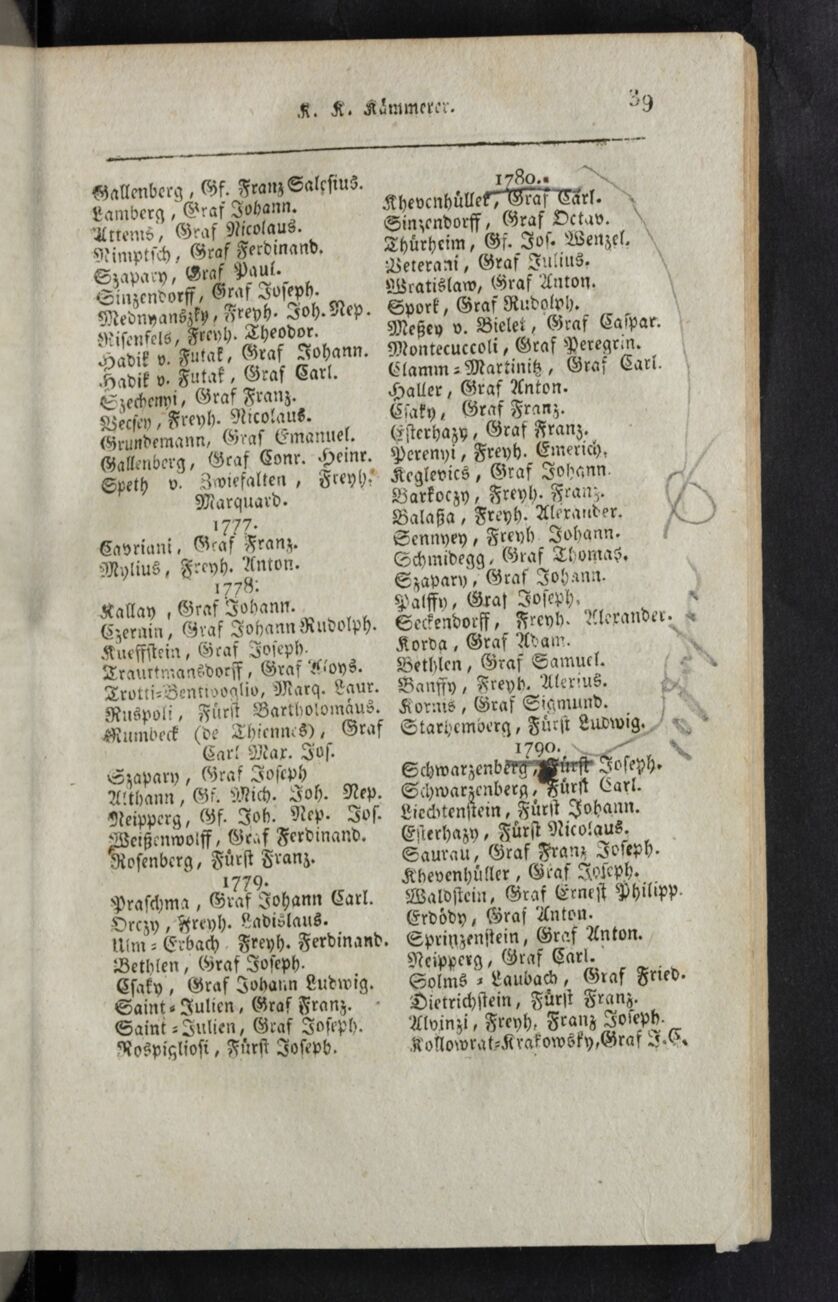 K. K. Kämmerer.
39
Gallenberg, Gf. Franz Salesius.
Lamberg, Graf Johann.
Attems, Graf Nicolaus.
Nimptsch, Graf Ferdinand.
Szapary, Graf Paul.
Sinzendorff, Graf Joseph.
Mednyanszky, Freyh. Joh. Nep.
Risenfels, Freyh. Theodor.
Hadik v. Futak, Graf Johann.
Hadik v. Futak, Graf Carl.
Szechenyi, Graf Franz.
Vecsey, Freyh. Nicolaus.
Grundemann, Graf Emanuel.
Gallenberg, Graf Conr. Heinr.
Speth v. Zwiefalten, Freyh.
Marquard.
1777.
Cavriani, Graf Franz.
Mylius, Freyh. Anton.
1778.
Kallay, Graf Johann.
Czernin, Graf Johann Rudolph.
Kueffstein, Graf Joseph.
Trauttmansdorff, Graf Aloys.
Trotti-Bentivoglio, Marq. Laur.
Ruspoli, Fürst Bartholomäus.
Rumbeck (de Thiennes), Graf
Carl Max. Jos.
Szapary, Graf Joseph
Althann, Gf. Mich. Joh. Nep.
Neipperg, Gf. Joh. Nep. Jos.
Weißenwolff, Graf Ferdinand.
Rosenberg, Fürst Franz.
1779.
Praschma, Graf Johann Carl.
Orczy, Freyh. Ladislaus.
Ulm-Erbach Freyh. Ferdinand.
Bethlen, Graf Joseph.
Csaky, Graf Johann Ludwig.
Saint-Julien, Graf Franz.
Saint-Julien, Graf Joseph.
Rospigliosi, Fürst Joseph.
1780.
Khevenhüller, Graf Carl.
Sinzendorff, Graf Octav.
Thürheim, Gf. Jos. Wenzel.
Veterani, Graf Julius.
Wratislaw, Graf Anton.
Spork, Graf Rudolph.
Meßey v. Bielet, Graf Caspar.
Montecuccoli, Graf Peregrin.
Clamm-Martinitz, Graf Carl.
Haller, Graf Anton.
Csaky, Graf Franz.
Esterhazy, Graf Franz.
Perenyi, Freyh. Emerich.
Keglevics, Graf Johann.
Barkoczy, Freyh. Franz.
Balaßa, Freyh. Alexander.
Sennyey, Freyh Johann.
Schmidegg, Graf Thomas.
Szapary, Graf Johann.
Palffy, Graf Joseph.
Seckendorff, Freyh. Alexander.
Korda, Graf Adam.
Bethlen, Graf Samuel.
Banffy, Freyh. Alexius.
Kornis, Graf Sigmund.
Starhemberg, Fürst Ludwig.
1790.
Schwarzenberg, Fürst Joseph.
Schwarzenberg, Fürst Carl.
Liechtenstein, Fürst Johann.
Esterhazy, Fürst Nicolaus.
Saurau, Graf Franz Joseph.
Khevenhüller, Graf Joseph.
Waldstein, Graf Ernest Philipp.
Erdödy, Graf Anton.
Sprinzenstein, Graf Anton.
Neipperg, Graf Carl.
Solms-Laubach, Graf Fried.
Dietrichstein, Fürst Franz.
Alvinzi, Freyh. Franz Joseph.
Kollowrat-Krakowsky, Graf J. C.